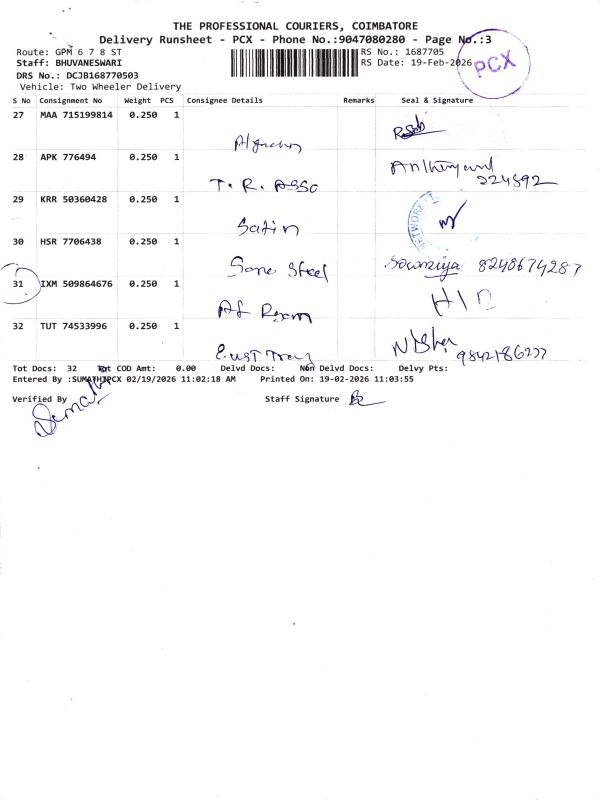 THE PROFESSIONAL COURIERS, COIMBATORE
Delivery Runsheet - PCX - Phone No.:9047080280 - Page No.:3
Route: GPM 6 7 8 ST
RS No.: 1687705
Staff: BHUVANESWARI
RS Date: 19-Feb-2026
PCX
DRS No.: DCJB168770503
Vehicle: Two Wheeler Delivery
S No Consignment No Weight PCS Consignee Details Remarks Seal & Signature
27 MAA 715199814 0.250 1
28 APK 776494 0.250 1
T. R. Asso
224892
29 KRR 50360428 0.250 1
Satin
NETWORK
30 HSR 7706438 0.250 1
Sone Steel
Sowmiya 8248674287
31 IXM 509864676 0.250 1
32 TUT 74533996 0.250 1
Tot Docs: 32 Tot COD Amt: 0.00 Delvd Docs: Non Delvd Docs: Delvy Pts:
Entered By :SUMATHIPCX 02/19/2026 11:02:18 AM Printed On: 19-02-2026 11:03:55
Verified By
Staff Signature